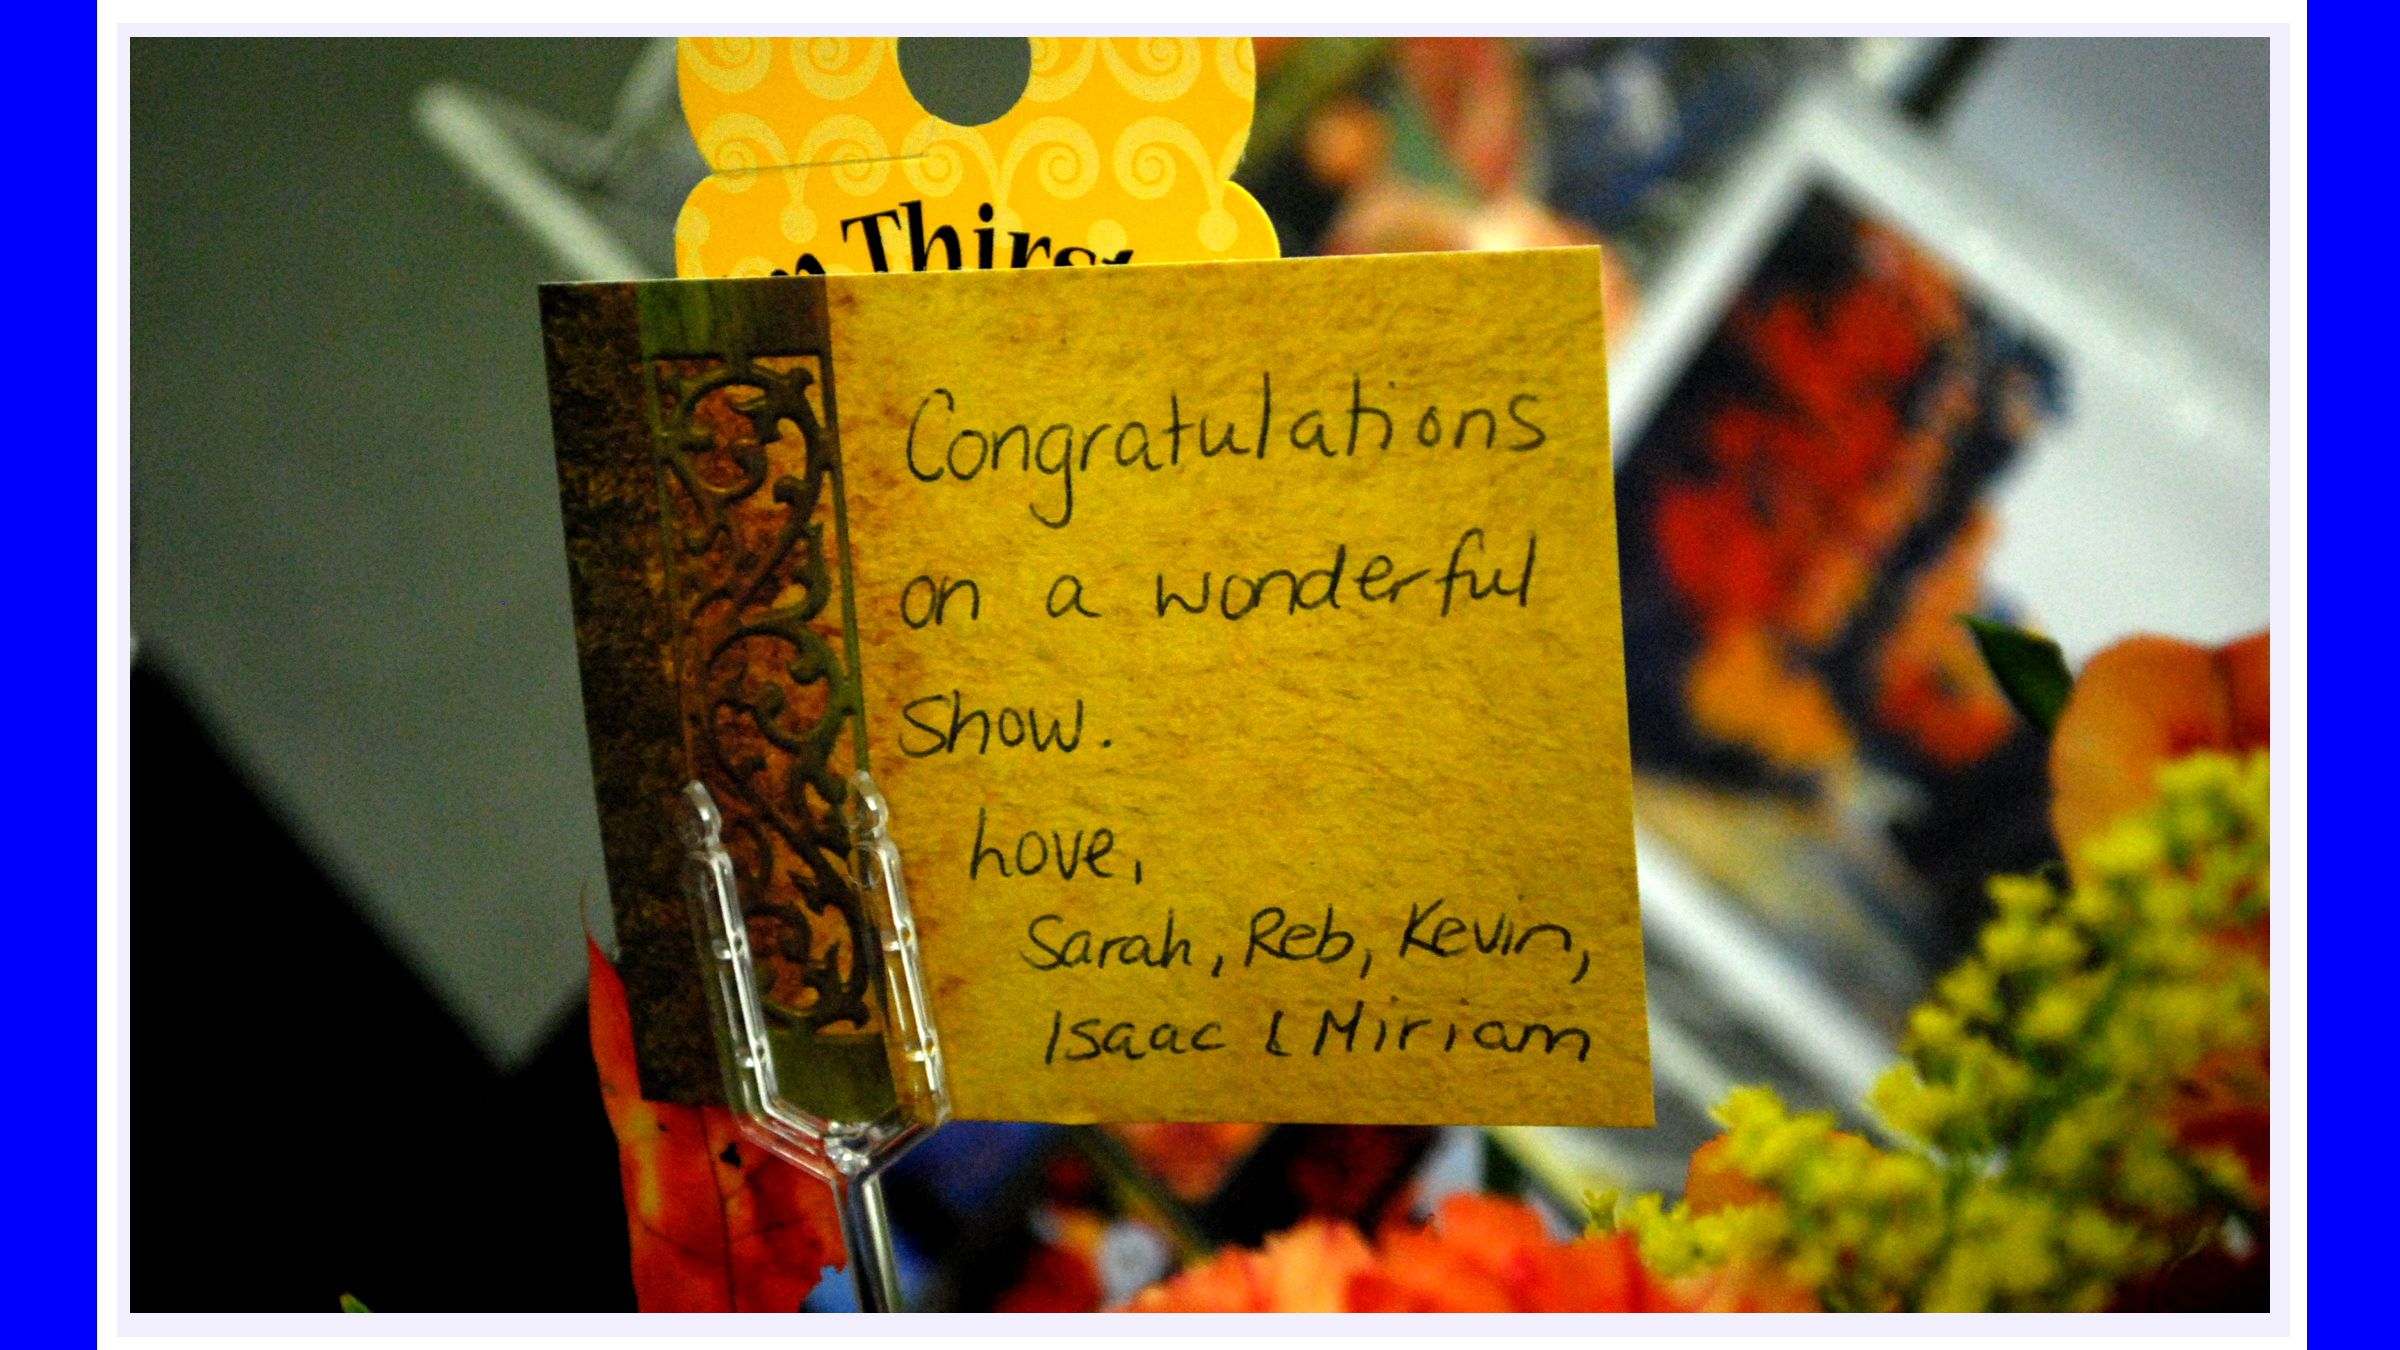 Thirs
Congratulations
on a wonderful
show.
Love,
Sarah, Reb, Kevin,
Isaac & Miriam